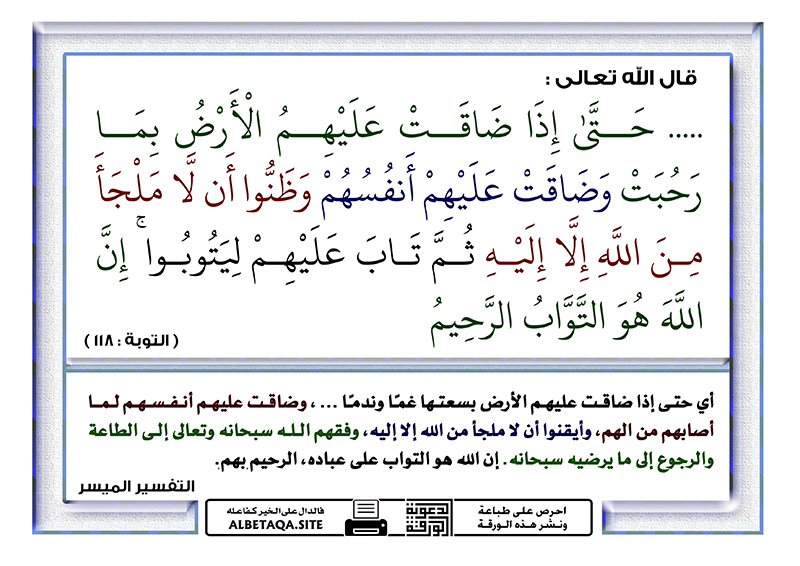 قال الله تعالى :
..... حَتَّىٰ إِذَا ضَاقَتْ عَلَيْهِمُ الْأَرْضُ بِمَا
رَحُبَتْ وَضَاقَتْ عَلَيْهِمْ أَنفُسُهُمْ وَظَنُّوا أَن لَّا مَلْجَأَ
مِنَ اللَّهِ إِلَّا إِلَيْهِ ثُمَّ تَابَ عَلَيْهِمْ لِيَتُوبُوا ۚ إِنَّ
اللَّهَ هُوَ التَّوَّابُ الرَّحِيمُ
( التوبة : ١١٨ )
أي حتى إذا ضاقت عليهم الأرض بسعتها غمًا وندمًا ... ، وضاقت عليهم أنفسهم لما
أصابهم من الهم، وأيقنوا أن لا ملجأ من الله إلا إليه، وفقهم الله سبحانه وتعالى إلى الطاعة
والرجوع إلى ما يرضيه سبحانه. إن الله هو التواب على عباده، الرحيم بهم.
التفسير الميسر
احرص على طباعة
ونشر هذه الورقة
الورقة
الدعوية
فالدال على الخير كفاعله
ALBETAQA.SITE